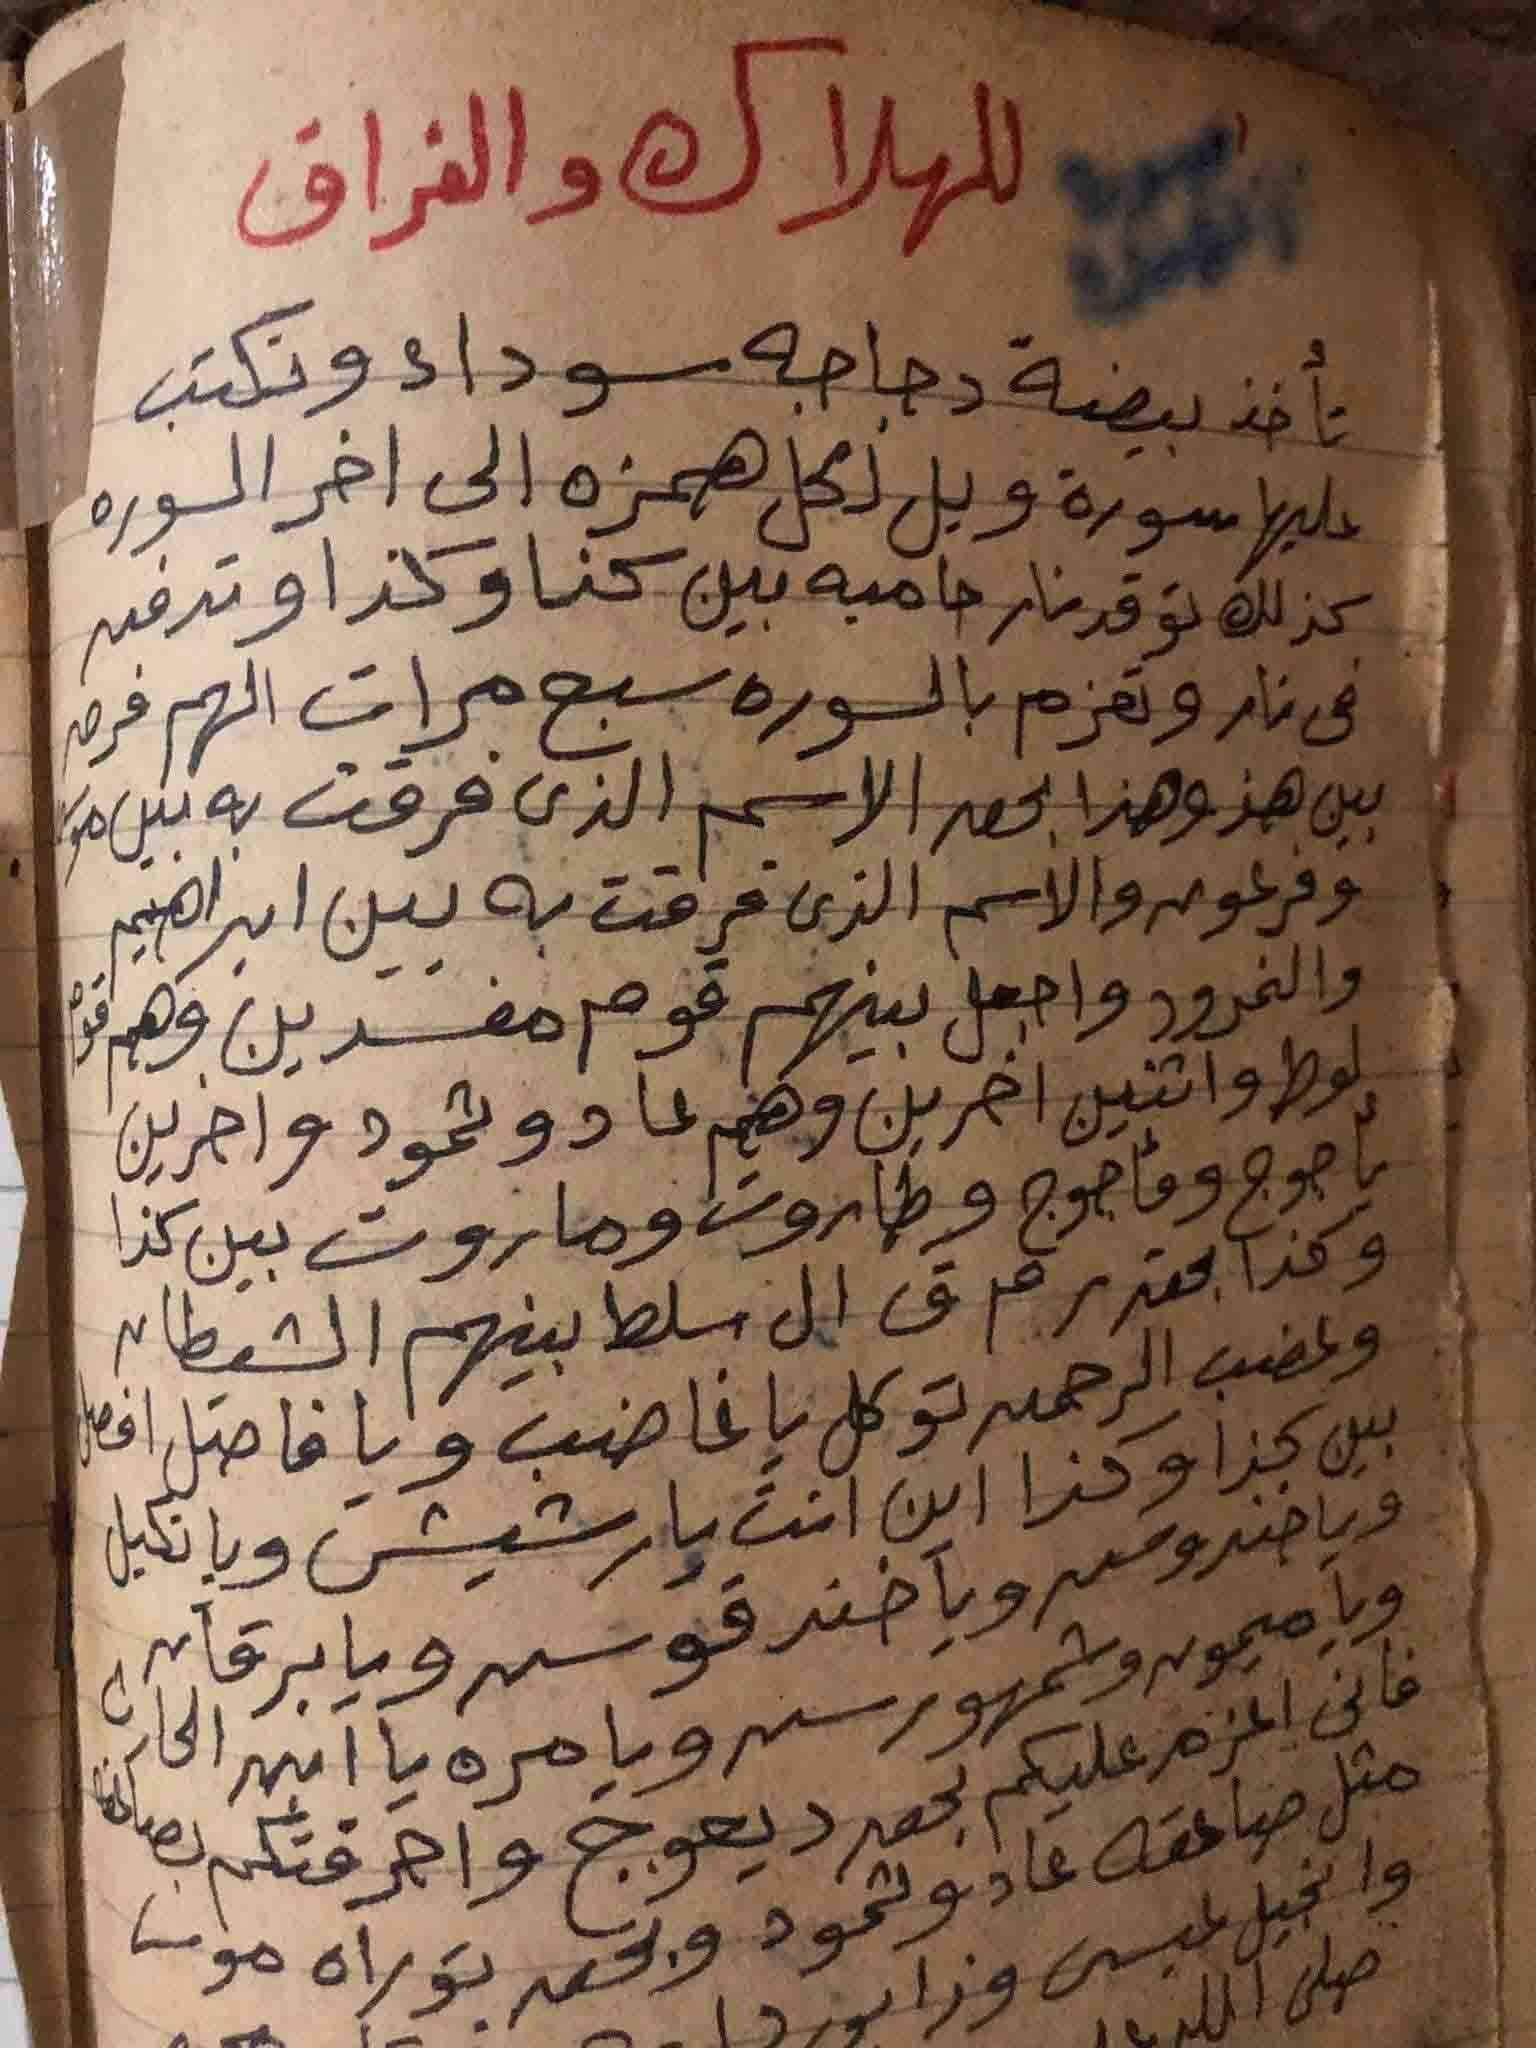 للهلاك والفراق
تأخذ بيضة دجاجه سوداء وتكتب
عليها سورة ويل لكل همزه الى اخر السوره
كذلك توقد نار حاميه بين كذا وكذا وتدفن
فى نار وتعزم بالسوره سبع مرات الهم فرق
بين هذ وهذا بحق الاسم الذى فرقت به بين
وفرعون والاسم الذى فرقت به بين ابراهيم
والنمرود واجعل بينهم قوم مفسدين وهم قوم
لوط واثنين اخرين وهم عاد وثمود واخرين
يأجوج ومأجوج وهاروت وماروت بين كذا
وكذا بحق م ق ال سلط بينهم الشيطان
وغضب الرحمن توكل يا غاضب ويا فاصل افصل
بين كذا وكذا اين انت يا رشيش ويا نكيل
ويا خندروس ويا خند قوس ويا برقان
ويا ميمون وشمهورس ويا مره يا ابن الحارث
فانى اعزم عليكم بحق ديعوج واحرقتكم
مثل صاعقه عاد وثمود وبحق توراه
وانجيل عيسى وزابور
صلى الله